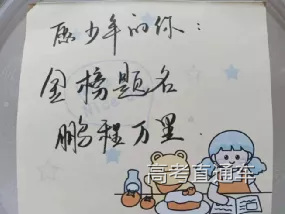 愿少年的你：
金榜题名
鹏程万里.
高考直通车